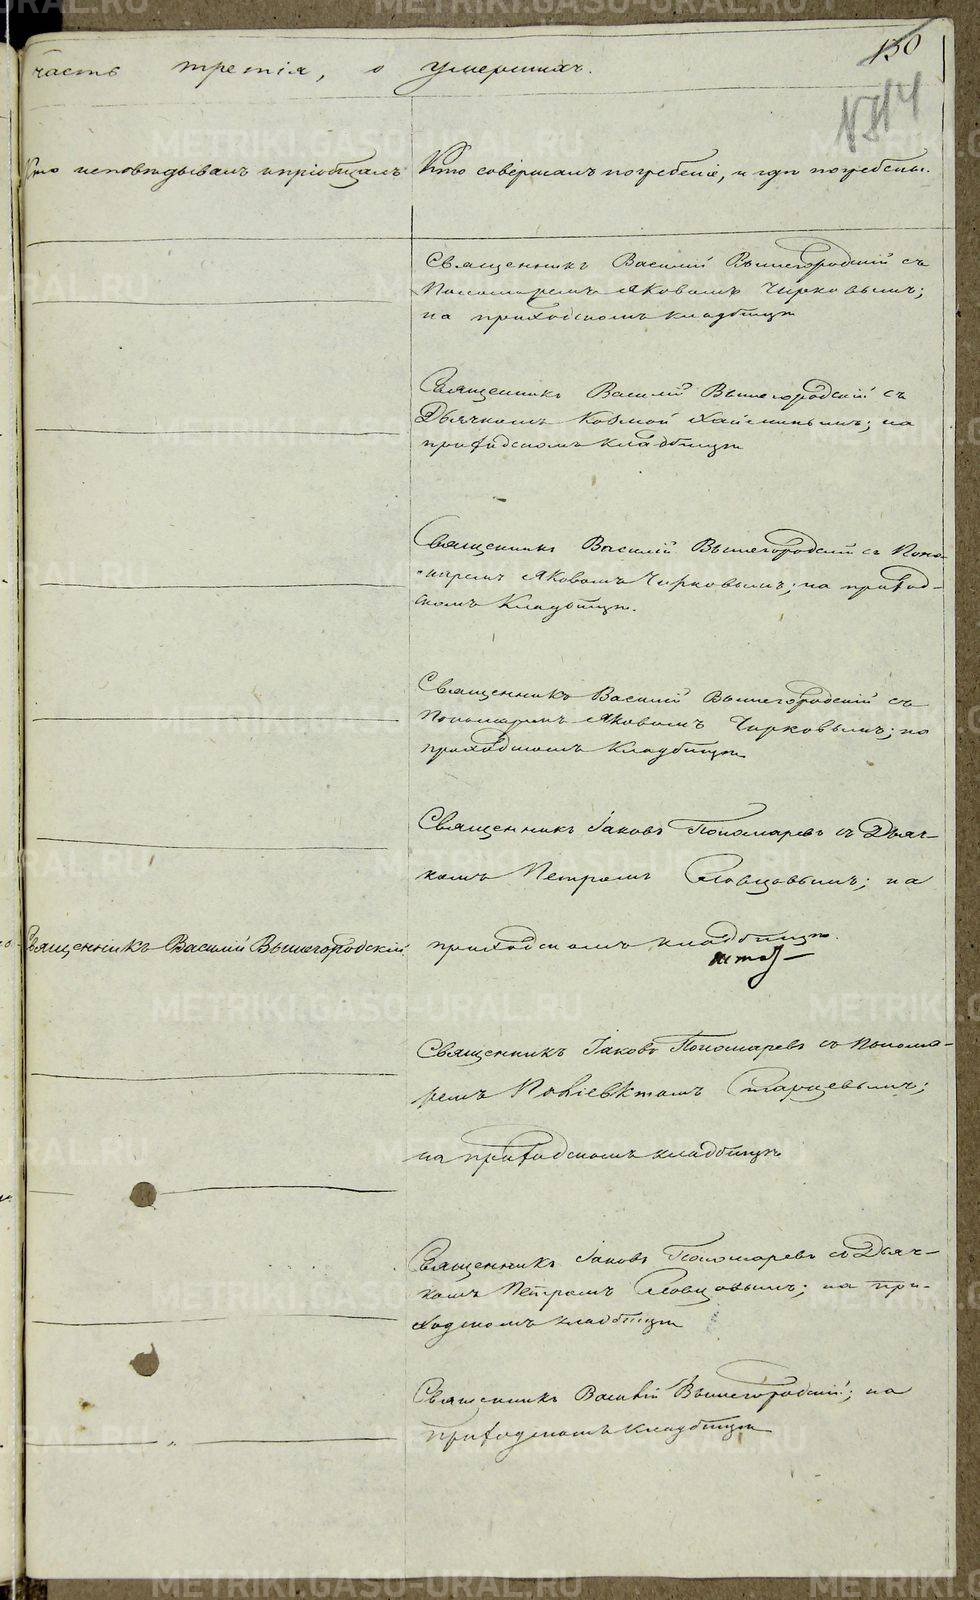 130
часть третія, о умершихъ.
Кто исповѣдывалъ и пріобщалъ
Кто совершалъ погребеніе, и гдѣ погребены.
Священникъ Василій Вышегородскій съ
Пономаремъ Яковомъ Чирковымъ;
на приходскомъ кладбищѣ
Священникъ Василій Вышегородскій съ
Дьячкомъ Козмой; на
приходскомъ кладбищѣ
Священникъ Василій Вышегородскій съ Поно-
маремъ Яковомъ Чирковымъ; на приход-
скомъ кладбищѣ.
Священникъ Василій Вышегородскій съ
Пономаремъ Яковомъ Чирковымъ; на
приходскомъ кладбищѣ
Священникъ Іаковъ Пономаревъ съ Дьяч-
комъ Петромъ Словцовымъ; на
приходскомъ кладбищѣ.
Священникъ Василій Вышегородскій
Священникъ Іаковъ Пономаревъ съ Понома-
ремъ Поліевктомъ Старцевымъ;
на приходскомъ кладбищѣ
Священникъ Іаковъ Пономаревъ съ Дьяч-
комъ Петромъ Словцовымъ; на при-
ходскомъ кладбищѣ
Священникъ Василій Вышегородскій; на
приходскомъ кладбищѣ
METRIKI.GASO-URAL.RU